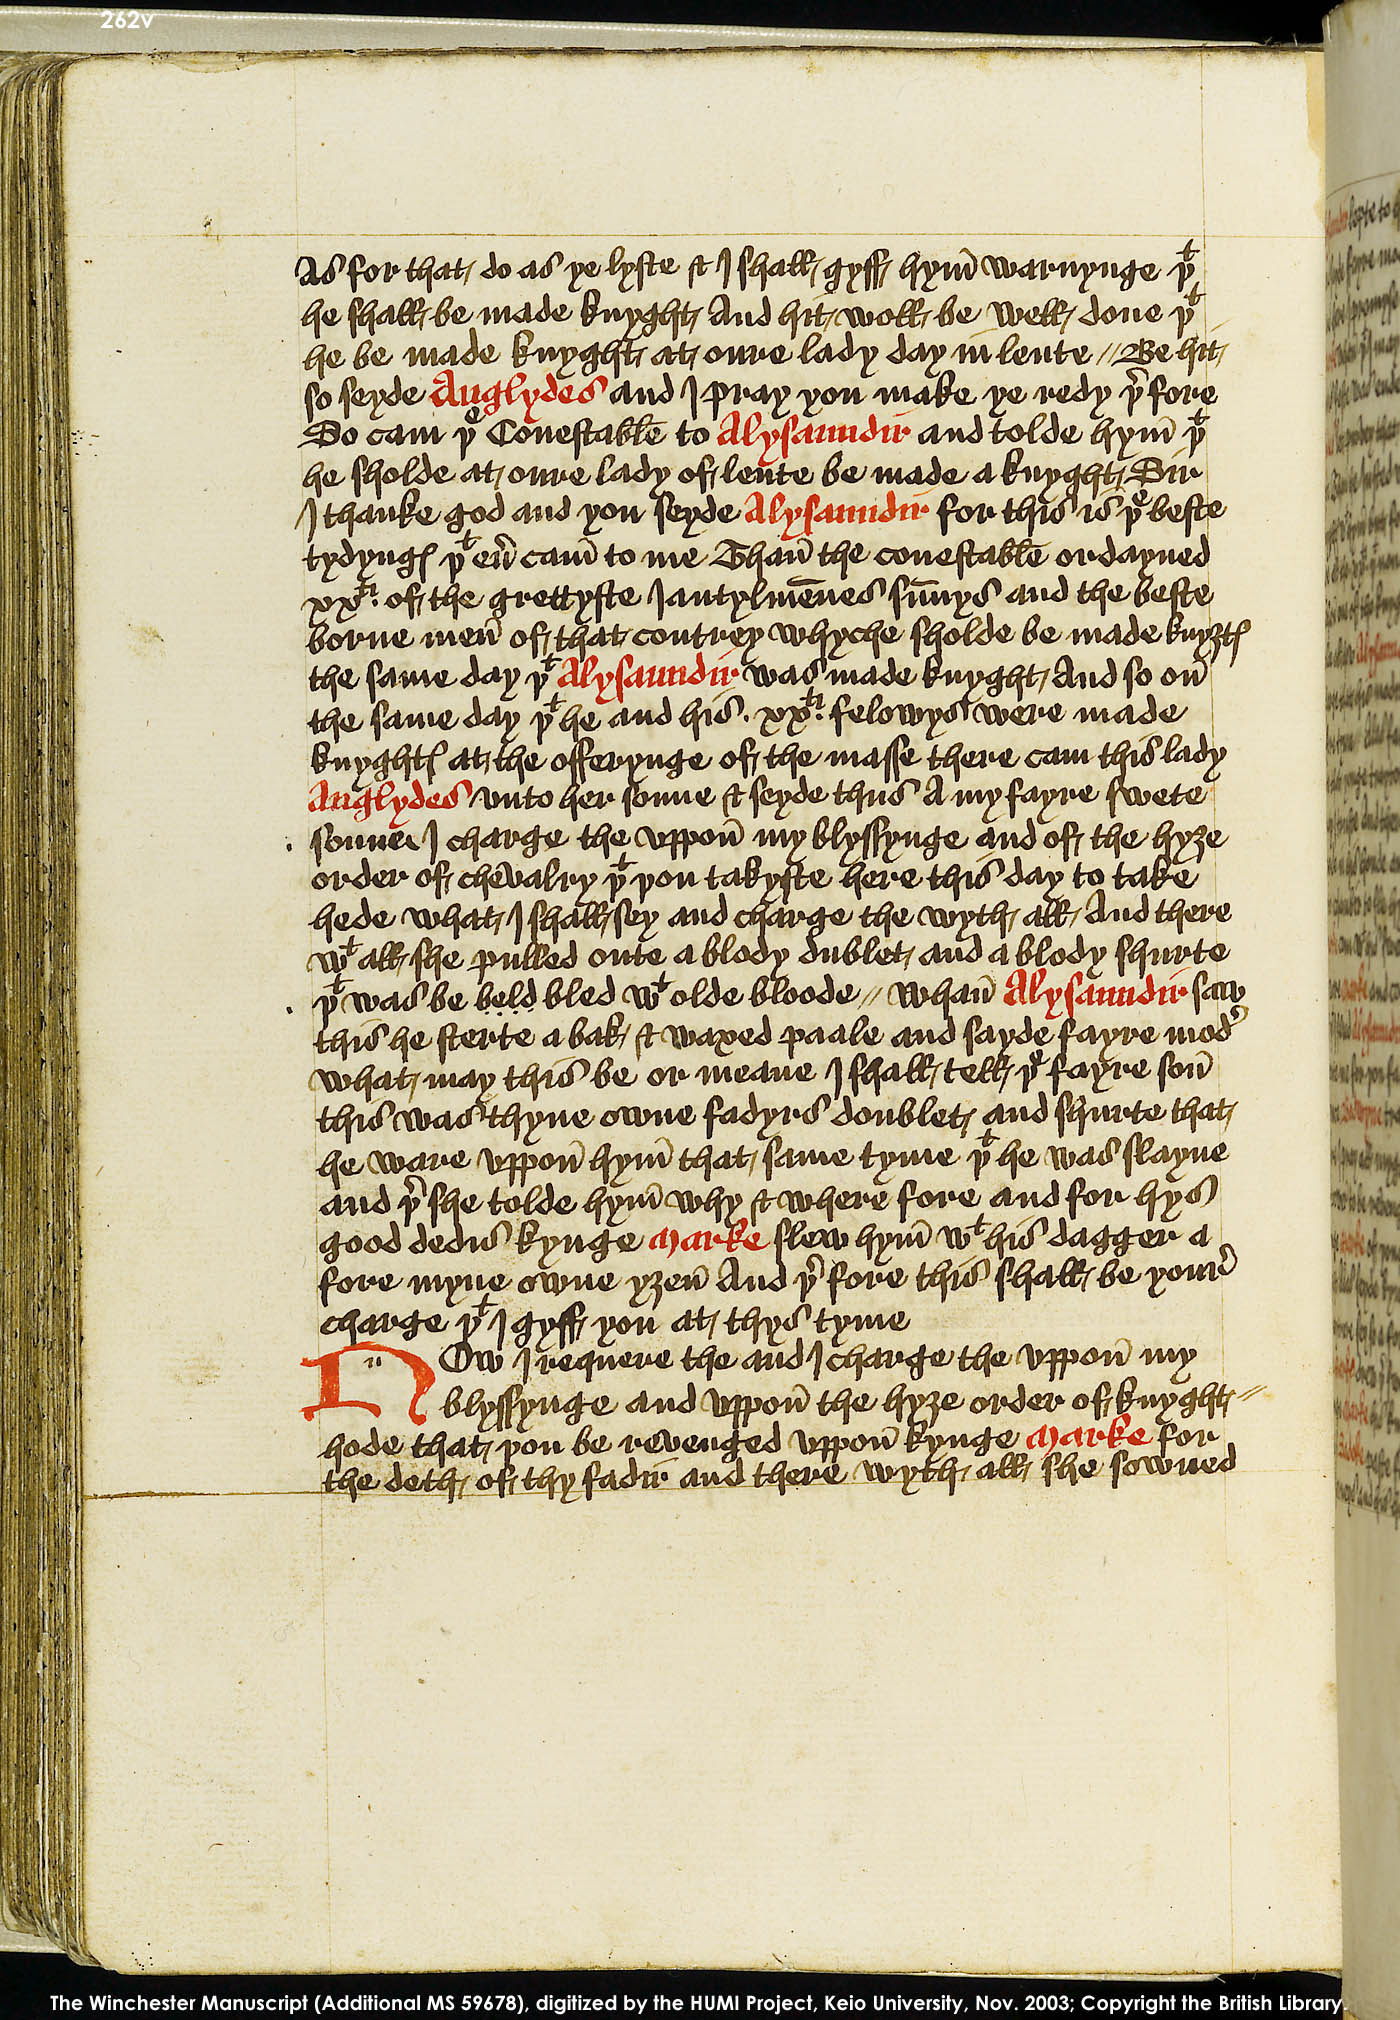 262v
As for that do as ye lyste & I shall gyff hym̄ warnynge þᵗ
he shall be made knyght And hit woll be well done þᵗ
he be made knyght at oure lady day in lente // Be hit
so seyde Anglydes and I pray you make ye redy þ̓fore
So cam þᵉ Conestable to Alysaundir and tolde hym̄ þᵗ
he sholde at oure lady of lente be made a knyght Sir
I thanke god and you seyde Alysaundir for this is þᵉ beste
tydyngꝭ þᵗ eū̓ cam̄ to me Than̄ the conestable ordayned
xxᵗⁱ. of the grettyste Jantylmēnes sūnys and the beste
borne men̄ of that contrey whyche sholde be made knyȝtꝭ
the same day þᵗ Alysaundir was made knyght And so on̄
the same day þᵗ he and his . xxᵗⁱ. felowys were made
knyghtꝭ at the offerynge of the masse there cam this lady
Anglydes vnto her sonne & seyde thus A my fayre swete
sonne I charge the vppon̄ my blyssynge and of the hyȝe
order of chevalry þᵗ þou takyste here this day to take
hede what I shall sey and charge the wyth all And there
wᵗ all she pulled oute a blody dublet and a blody shurte
þᵗ was be beld bled wᵗ olde bloode // Whan̄ Alysaundir saw
this he sterte a bak & waxed paale and sayde fayre mod̓
what may this be or meane I shall tell þᵉ fayre son̄
this was thyne owne fadyrs doublet and shurte that
he ware vppon̄ hym̄ that same tyme þᵗ he was slayne
and þ̓ she tolde hym̄ why & where fore and for hys
good dedis kynge Marke slew hym̄ wᵗ his dagger a
fore myne owne yȝen̄ And þ̓ fore this shall be your̓
charge þᵗ I gyff you at thys tyme
NOw I requere the and I charge the vppon̄ my
blyssynge and vppon̄ the hyȝe order of knyght //
hode that þou be revenged vppon̄ kynge Marke for
the deth of thy fadir and there wyth all she sowned
The Winchester Manuscript (Additional MS 59678), digitized by the HUMI Project, Keio University, Nov. 2003; Copyright the British Library.